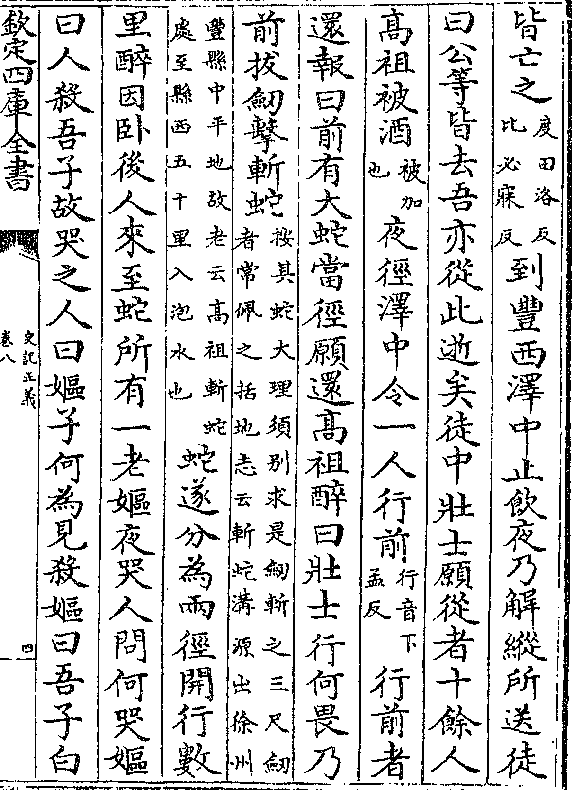 皆亡之度田洛反比必寐反到豐西澤中止飲夜乃解縱所送徒
曰公等皆去吾亦從此逝矣徒中壯士願從者十餘人
高祖被酒被加也夜徑澤中令一人行前行音下孟反行前者
還報曰前有大蛇當徑願還高祖醉曰壯士行何畏乃
前拔劒擊斬蛇按其蛇大理須別求是劒斬之三尺劒者常佩之括地志云斬蛇溝源出徐州
豐縣中平地故老云高祖斬蛇處至縣西五十里入泡水也蛇遂分為兩徑開行數
里醉因卧後人來至蛇所有一老嫗夜哭人問何哭嫗
曰人殺吾子故哭之人曰嫗子何為見殺嫗曰吾子白
欽定四庫全書
史記正義
卷八
四